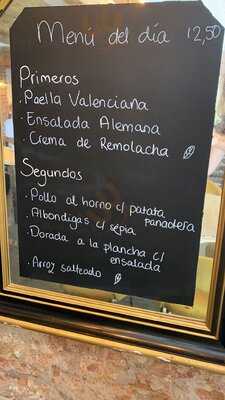 Menú del día 12,50
Primeros
· Paella Valenciana
· Ensalada Alemana
· Crema de Remolacha
Segundos
· Pollo al horno c/ patata
panadera
· Albondigas c/ sepia
· Dorada a la plancha c/
ensalada
· Arroz salteado